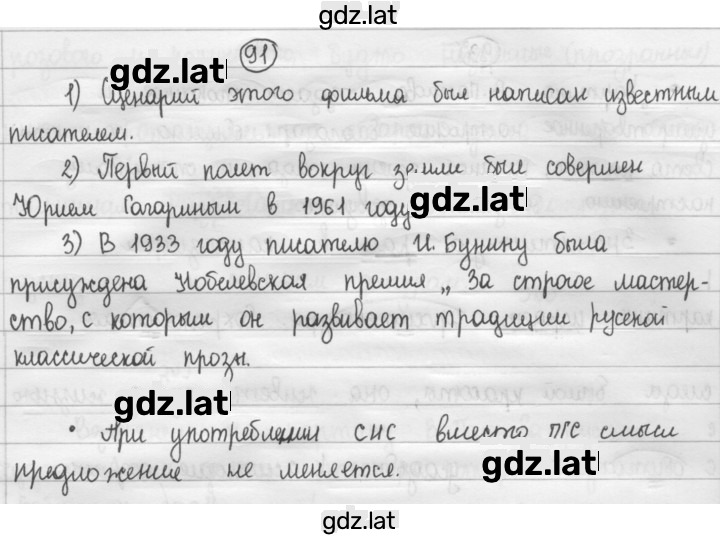 gdz.lat
91
gdz.lat
1) Сценарий этого фильма был написан известным
писателем.
2) Первый полет вокруг земли был совершен
Юрием Гагариным в 1961 году
gdz.lat
3) В 1933 году писателю И. Бунину была
присуждена Нобелевская премия „За строгое мастер-
ство, с которым он развивает традиции русской
классической прозы.
gdz.lat
• При употреблении СПС вместо ПГС смысл
предложение не меняется.
gdz.lat
gdz.lat